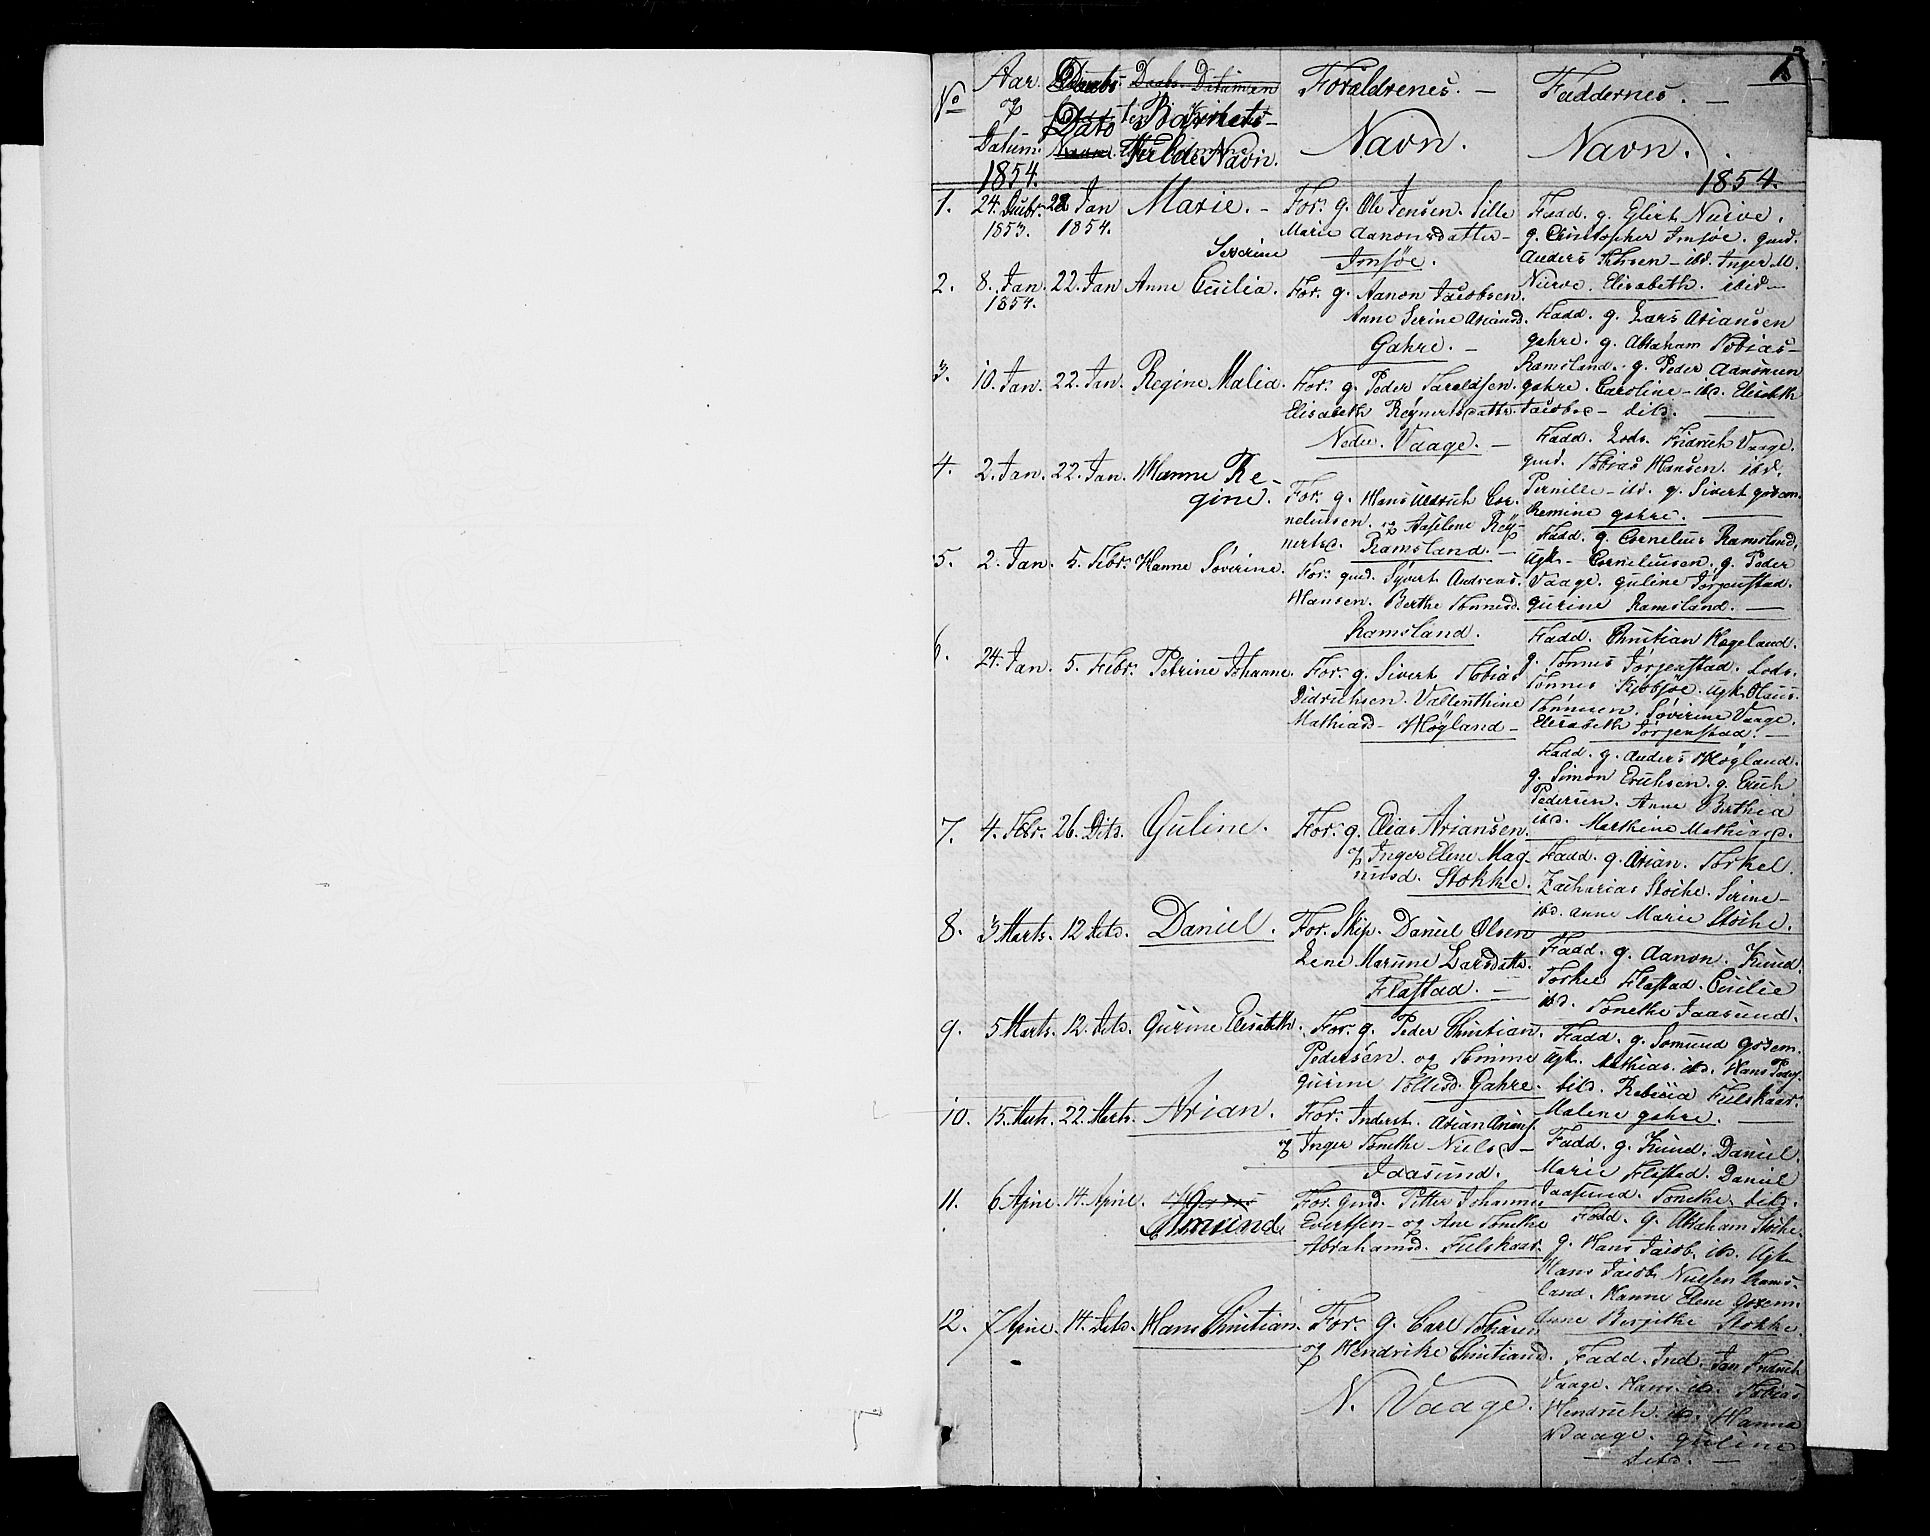 No
Aar
og
Datum.
1854.
Daabs
Dato
Daabs Datumen
Barnets
fulde Navn.
Forældrenes. —
Navn.
Faddernes. —
Navn.
1854.
1. 24. Decbr. 1853. 22 Jan 1854. Marie. —
Severine
For. g. Ole Jensen. Sille
Marie Aanonsdatter —
Imsøe.
Fadd. g. Glert Nurve.
g. Christopher Imsøe. gmd.
Anders — ibd. Inger M.
Nurve. Elisabeth. ibid —
2. 8. Jan. 1854. 22 Jan Anne Cecilia.
For. g. Aanon Jacobsen.
Anne Serine Ariansd.
Gahre. —
Fadd. g. Lars Ariansen
gahre. g. Abraham Tobias —
Ramsland. g. Peder Aanonsen
gahre. Caroline — ibd. Elisabeth
Jacobsd — ditd.
3. 10. Jan. 22. Jan. Regine Malia.
For. g. Peder Taraldsen.
Elisabeth Reynertsdatter.
Nedre. Vaage. —
Fadd. Lods. Fridrich Vaage.
gmd. Tobias Hansen. ibd.
Pernille — ibd. g. Sivert gosem.
Remine gahre.
4. 2. Jan. 22. Jan. Hanne Re-
gine.
For. g. Hans Uldrich Cor-
neliussen. og Aaselene Rey-
nertsd. Ramsland. —
Fadd. g. Cornelius Ramsland.
Ugk — Corneliusen. g. Peder
Vaage. guline Jørgenstad.
gurine Ramsland. —
5. 2. Jan. 5. Febr. Hanne Søverine.
For. gmd. Syvert Andreas.
Hansen. Berthe Tønnesd.
Ramsland.
Fadd. Christian Hægeland.
g. Tønnes Jørgenstad. Lods.
Tønnes Ugk. Olaus
Tønnesen. Søverine Vaage.
Elisabeth Jørgenstad. —
6. 24. Jan. 5. Febr. Petrine Johanne.
For. g. Sivert Tobias
Didrichsen. Vallenthine
Mathiasd — Høgland —
Fadd. g. Anders Høgland.
g. Simon Erichsen. g. Erich
Pedersen. Anne Berthea
ibd. Marthine Mathiasd.
7. 4. Febr. 26. Ditd. Guline.
For. g. Elias Ariansen.
og Inger Elene Mag-
nusd. Stokke.
Fadd. g. Arian. Torkel.
Zacharias Stokke. Serine —
ibd. anne Marie Stokke.
8. 3 Marts. 12 Ditd. Daniel.
For. Skip. Daniel Olsen
Lene Marune Larsdatt.
Flastad. —
Fadd. g. Aanon. Knud.
Torkel Flastad. Cecilie
ibd. Tonethe Jaasund.
9. 5 Marts. 12. Ditd. Gurine Elisabeth.
For. g. Peder Christian.
Pedersen. og Tomine
gurine Tollesd. Gahre.
Fadd. g. Somund gosem.
Ugk. Mathias. ibd. Hans Peder
ditd. Rebecca Fulskaar.
Malene gahre.
10. 15. Marts. 22. Marts. Arian.
For. Inderst. Arian Arians.
og Inger Tonethe Nielsd —
Jaasund.
Fadd. g. Knud. Daniel.
Marie Flastad. Daniel
Jaasund. Tonethe. ditd.
11. 6 April. 14. April. Amund
For. gmd. Petter Johannes
Evertsen — og Ane Tonethe
Abrahamsd. Fulskaar.
Fadd. g. Abraham Stokke.
g. Hans Jacob. ibd. Ugk
Hans Jacob. Nielsen Rams-
land. Hanne Elene Gosem.
Anne Birgithe Stokke.
12. 7 April. 14. Ditd. Hans Christian.
For. g. Carl Tobiasen
og Hendrike Christiansd.
N. Vaage.
Fadd. Ind. Jan Fridrich
Vaage. Hans. ibd. Tobias
Hendrich. ibd. Hanna
Vaage. guline
— ditd. —